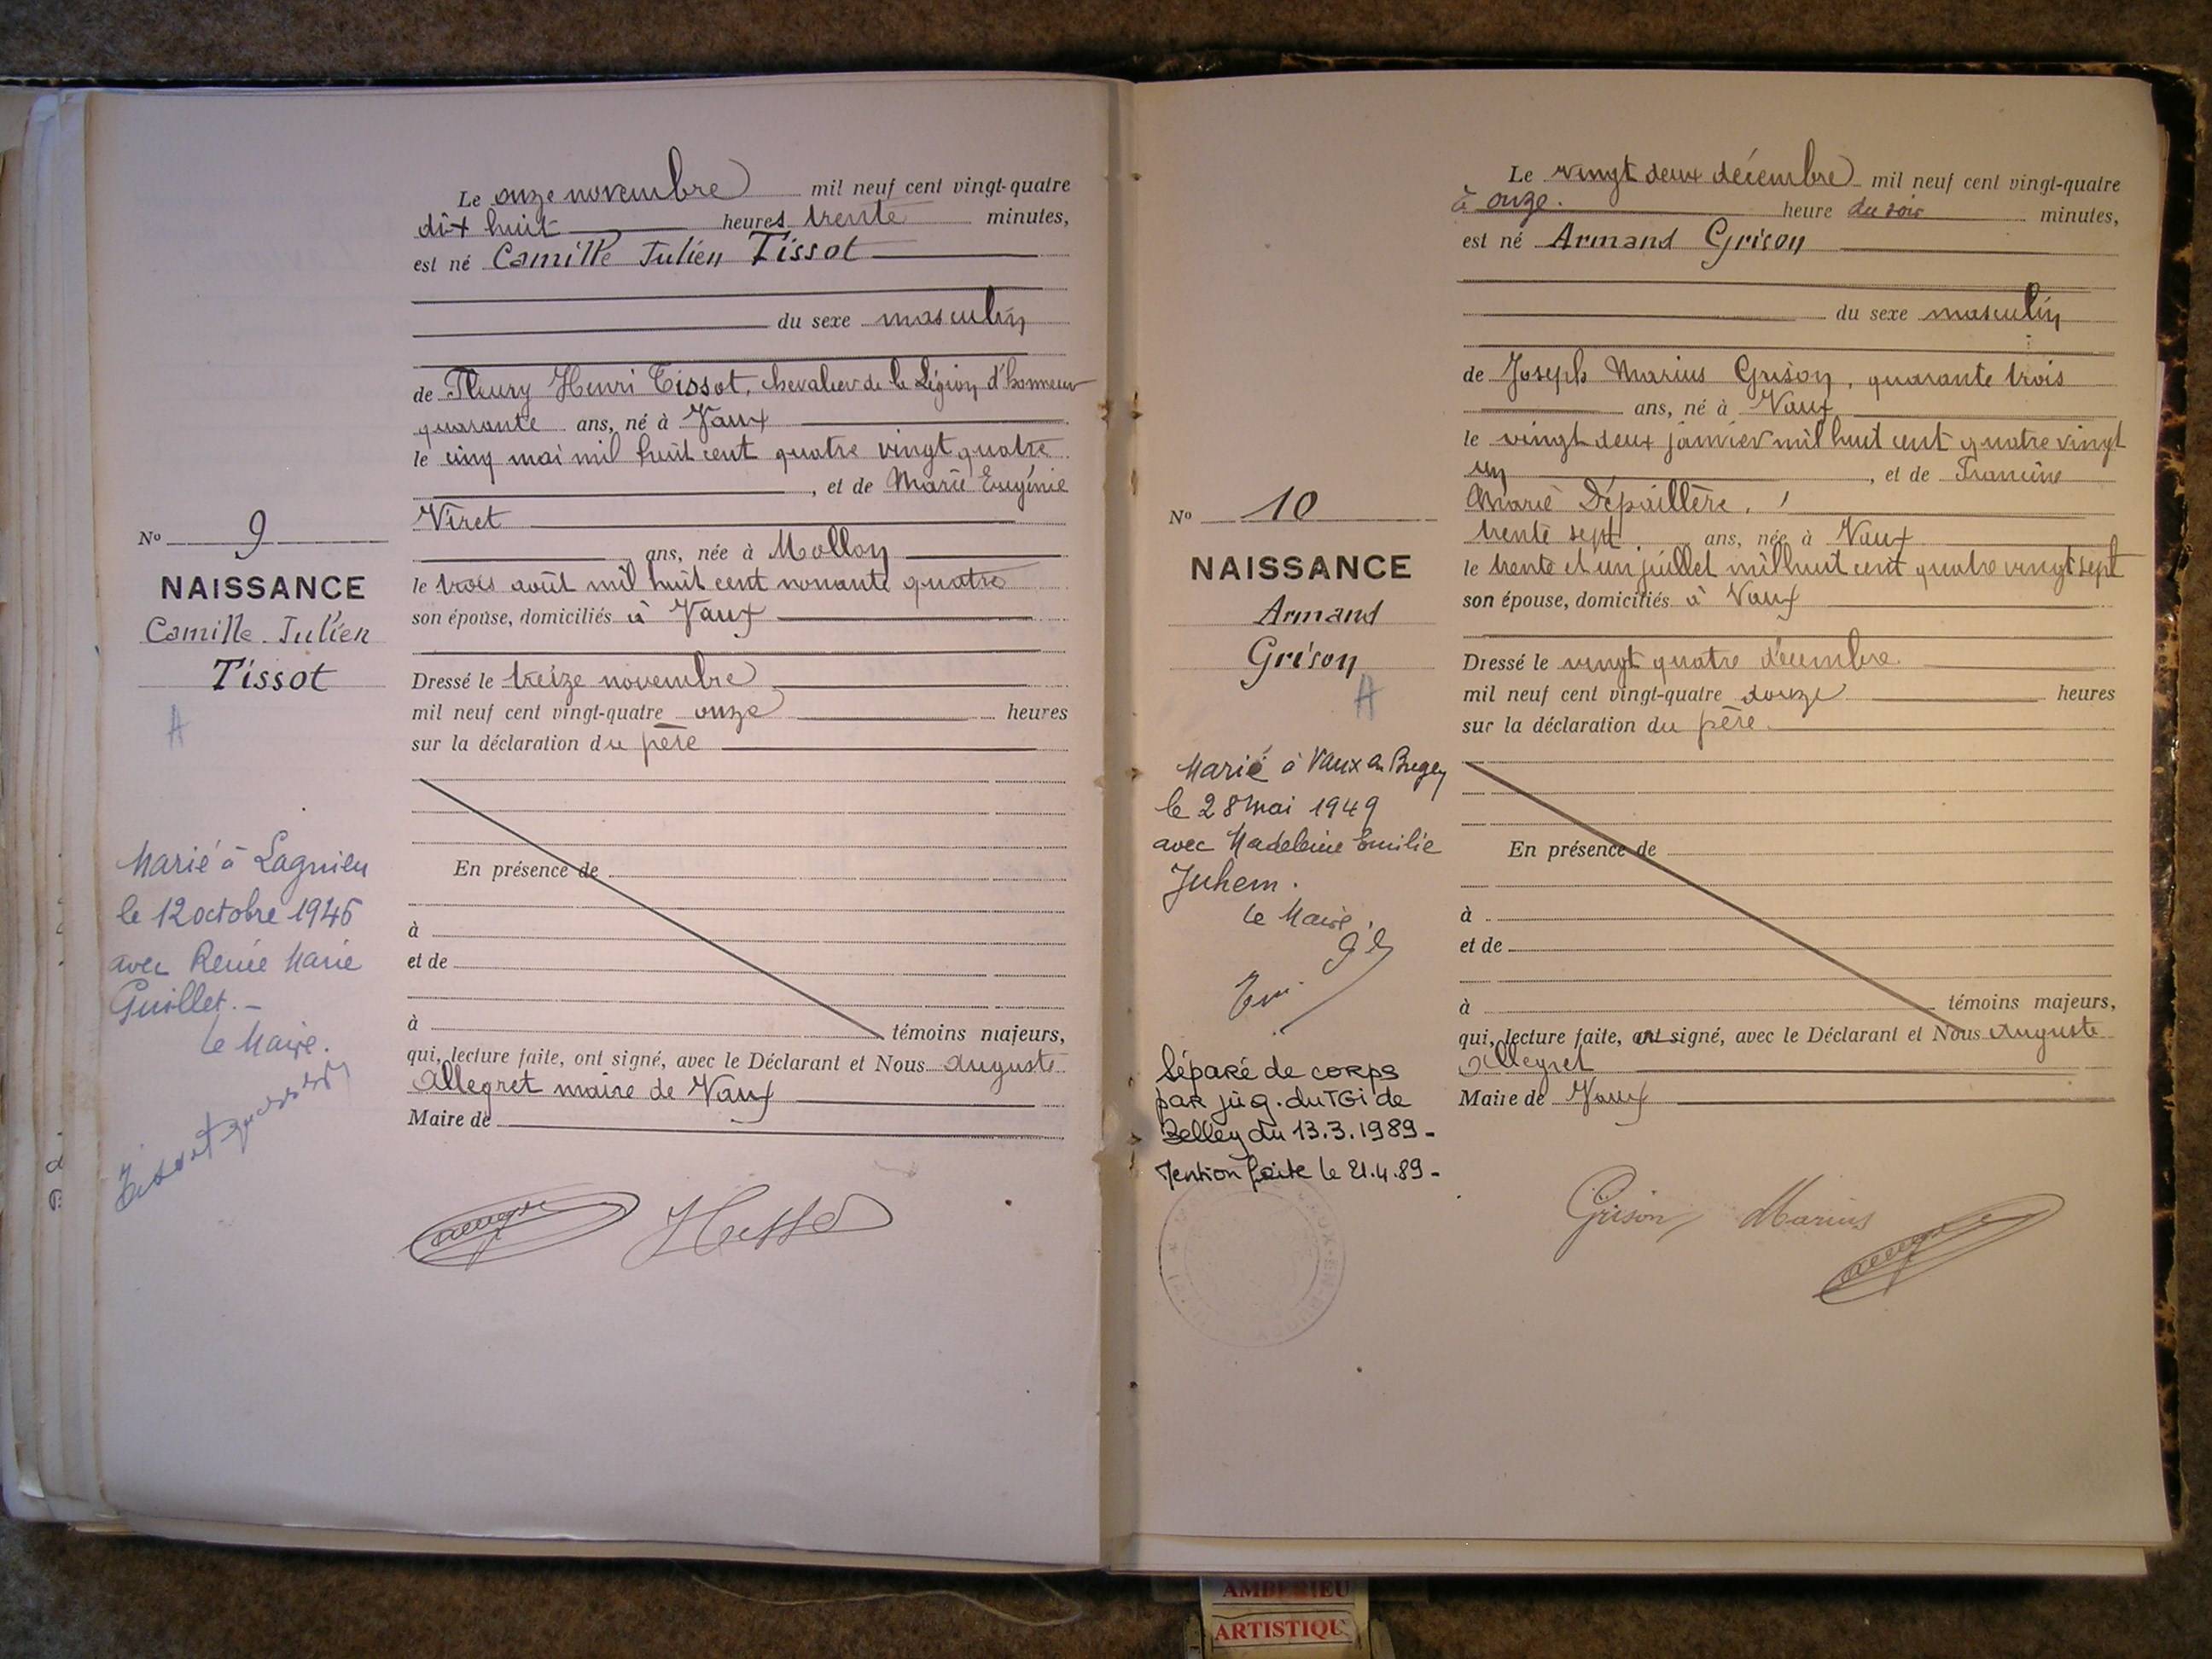 Le onze novembre mil neuf cent vingt-quatre
dix huit heures trente minutes,
est né Camille Julien Tissot
du sexe masculin
de Fleury Henri Tissot, chevalier de la Légion d'honneur
quarante ans, né à Vaux
le cinq mai mil huit cent quatre vingt quatre
, et de Marie Eugénie
Viret
ans, née à Mollon
le trois août mil huit cent nonante quatre
son épouse, domiciliés à Vaux
Dressé le treize novembre
mil neuf cent vingt-quatre onze heures
sur la déclaration du père
En présence de
à
et de
à témoins majeurs,
qui, lecture faite, ont signé, avec le Déclarant et Nous Auguste
Allegret maire de Vaux
Maire de
No 9
NAISSANCE
Camille Julien
Tissot
A
Marié à Lagnieu
le 12 octobre 1946
avec Renée Marie
Guillet.-
Le Maire.
Le vingt deux décembre mil neuf cent vingt-quatre
à onze. heure du soir minutes,
est né Armand Grison
du sexe masculin
de Joseph Marius Grison, quarante trois
ans, né à Vaux
le vingt deux janvier mil huit cent quatre vingt
un , et de Francine
Marie Dépaillère,
trente sept ans, née à Vaux
le trente et un juillet mil huit cent quatre vingt sept
son épouse, domiciliés à Vaux
Dressé le vingt quatre décembre.
mil neuf cent vingt-quatre douze heures
sur la déclaration du père.
En présence de
à
et de
à témoins majeurs,
qui, lecture faite, ont signé, avec le Déclarant et Nous Auguste
Allegret
Maire de Vaux
Grison Marius
No 10
NAISSANCE
Armand
Grison
A
Marié à Vaux en Bugey
le 28 mai 1949
avec Madeleine Emilie
Juhem.
Le Maire.
Séparé de corps
par jùg. du TGI de
Belley du 13.3.1989-
Mention faite le 21.4.89-
AMBERIEU
ARTISTIQU